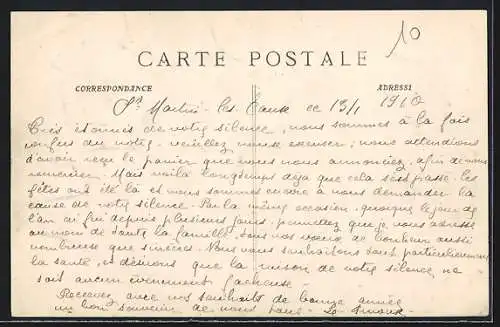 10
CARTE POSTALE
CORRESPONDANCE
ADRESSE
St Martin les ce 13/1 1910
Très étonnés de votre silence, nous sommes à la fois
du notre. veuillez nous excuser, nous attendions
d'avoir reçu le panier que vous nous annonciez, afin de vous
remercier. Mais voilà longtemps déjà que cela s'est passé. Les
fêtes ont été là et nous sommes encore à nous demander la
cause de votre silence. Par la même occasion, quoique le jour de
l'an ai fui depuis plusieurs jours, permettez que je vous adresse
au nom de toute la famille, tous nos vœux de bonheur aussi
nombreux que sincères. Nous vous souhaitons tout particulièrement
la santé, et désirons que la raison de votre silence ne
soit aucun évènement fâcheux.
Recevez avec nos souhaits de bonne année
un bon souvenir de nous tous.